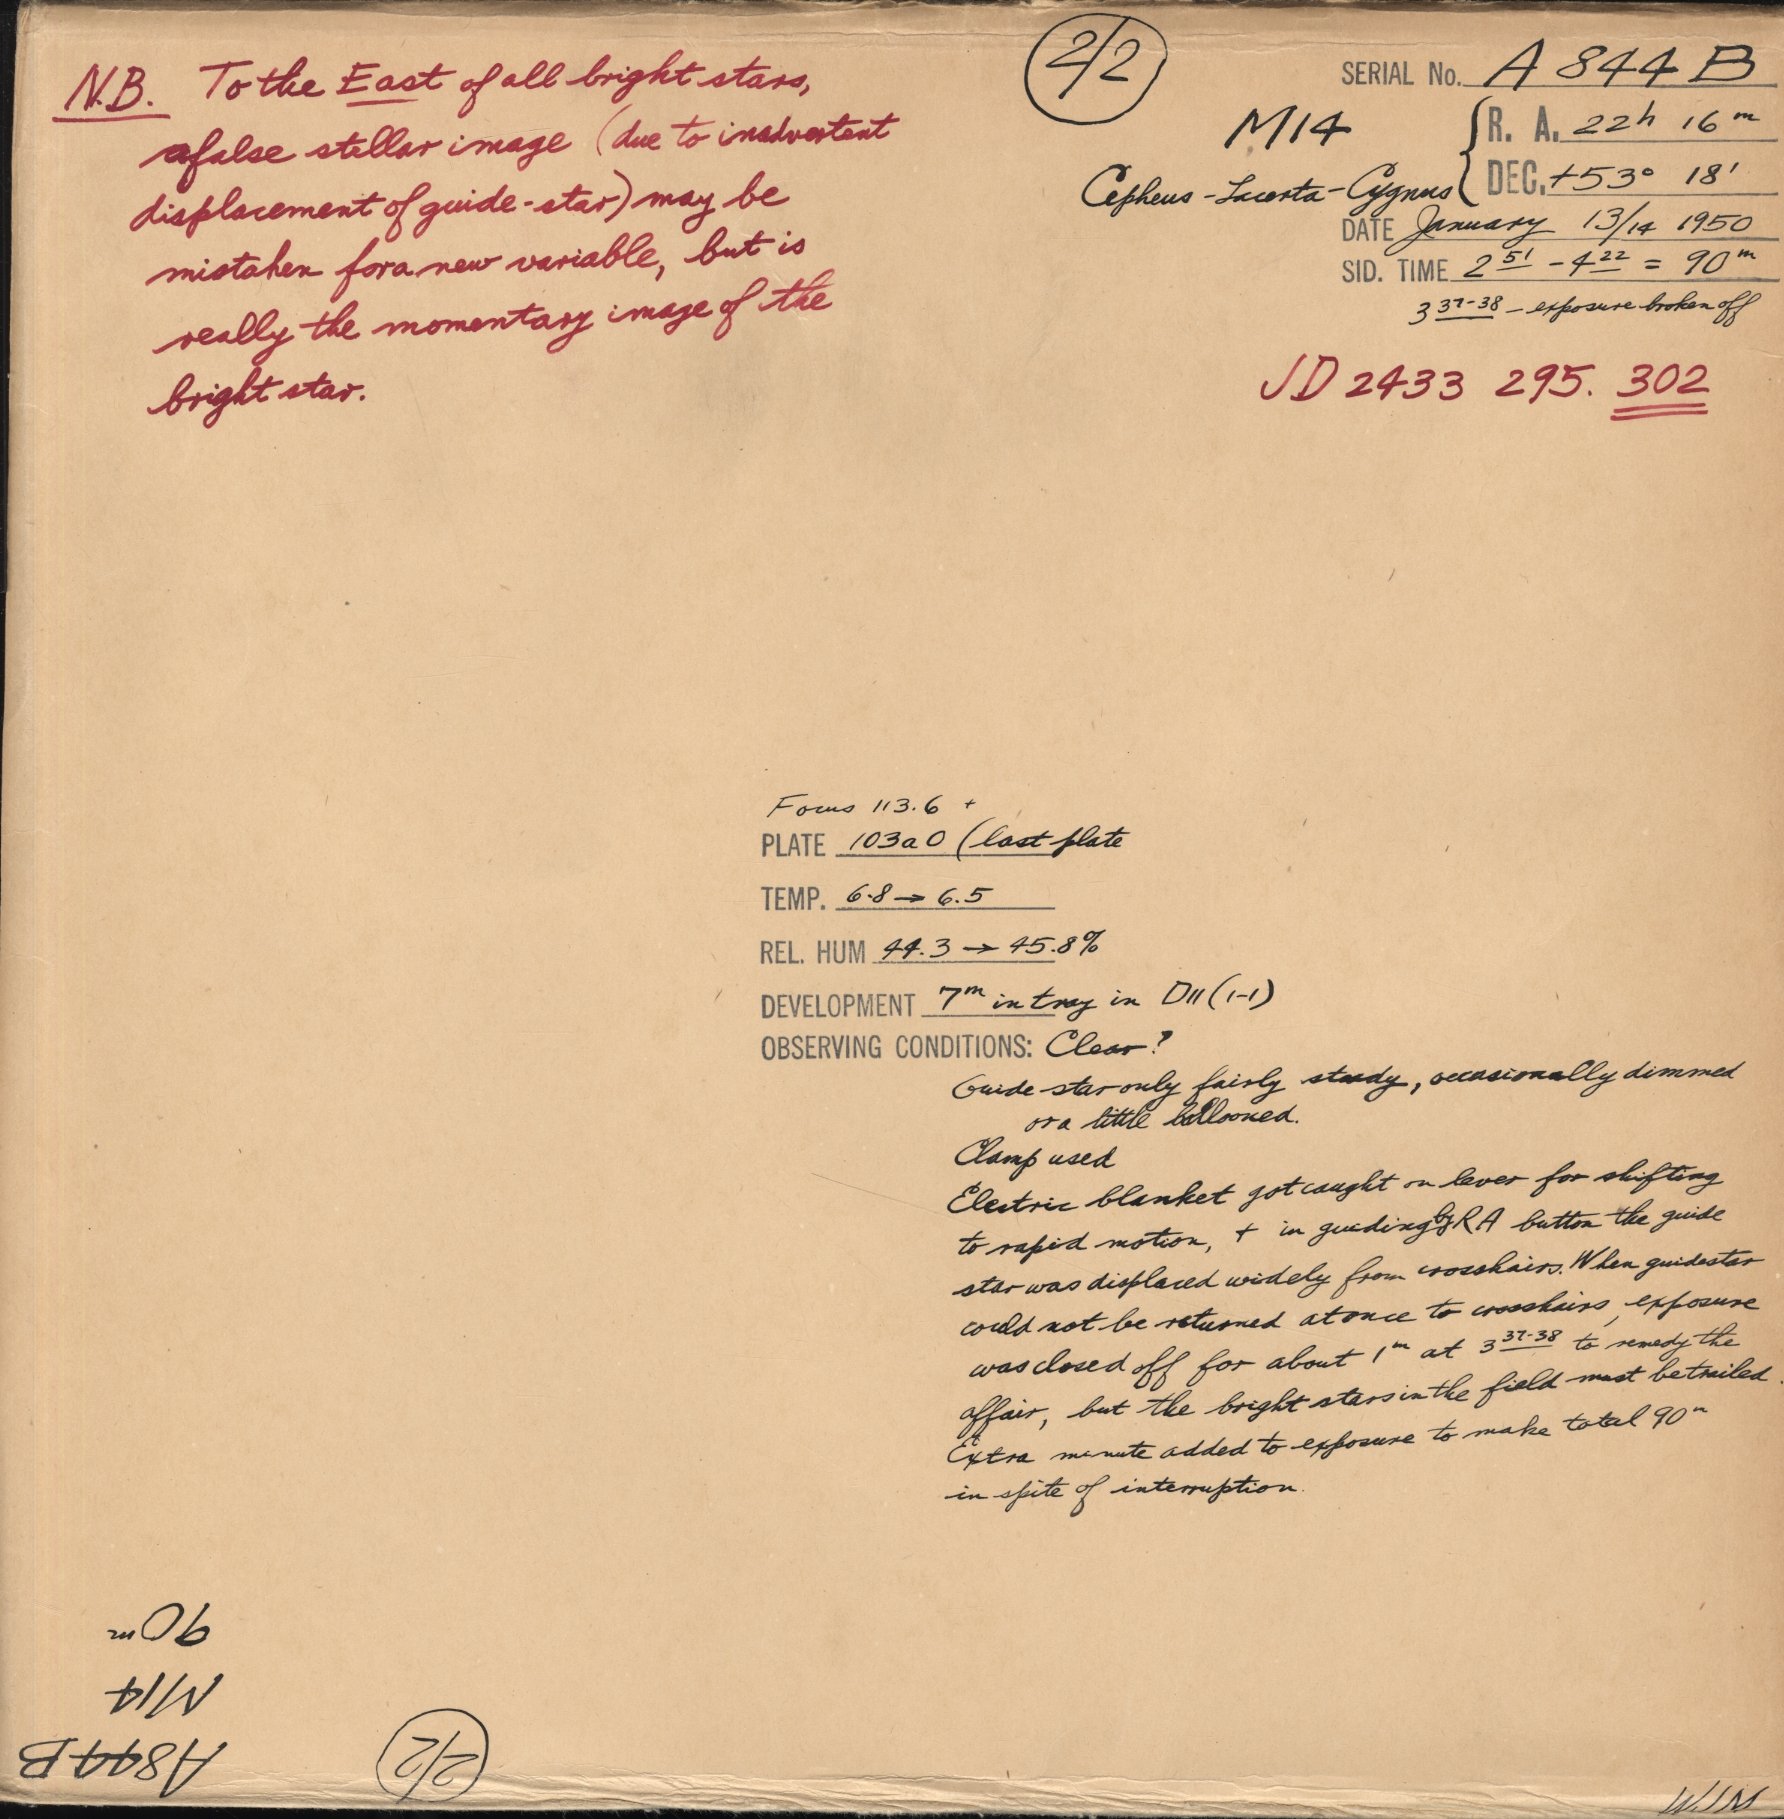 N.B. To the East of all bright stars,
a false stellar image (due to inadvertent
displacement of guide-star) may be
mistaken for a new variable, but is
really the momentary image of the
bright star.
2/2
SERIAL No. A 844 B
M14
R. A. 22h 16m
Cepheus - Lacerta - Cygnus
DEC. +53° 18'
DATE January 13/14 1950
SID. TIME 2 51 - 4 22 = 90m
3 37-38 - exposure broken off
JD 2433 295. 302
Focus 113.6 +
PLATE 103a0 (last plate
TEMP. 6.8 → 6.5
REL. HUM 44.3 → 45.8%
DEVELOPMENT 7m in tray in D11 (1-1)
OBSERVING CONDITIONS: Clear?
Guide star only fairly steady, occasionally dimmed
or a little ballooned.
Clamp used
Electric blanket got caught on lever for shifting
to rapid motion, + in guiding by RA button the guide
star was displaced widely from crosshairs. When guidestar
could not be returned at once to crosshairs, exposure
was closed off for about 1m at 3 37-38 to remedy the
affair, but the bright stars in the field must be trailed.
Extra minute added to exposure to make total 90m
in spite of interruption.
90m
M14
A844B
2/2